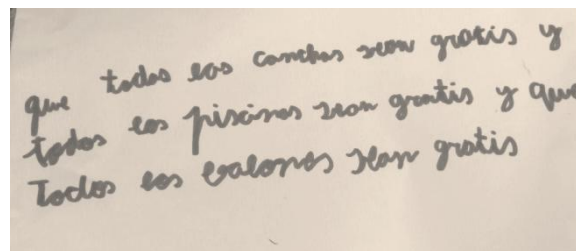 que todas las canchas sean gratis y
todas las piscinas sean gratis y que
Todos los balones sean gratis